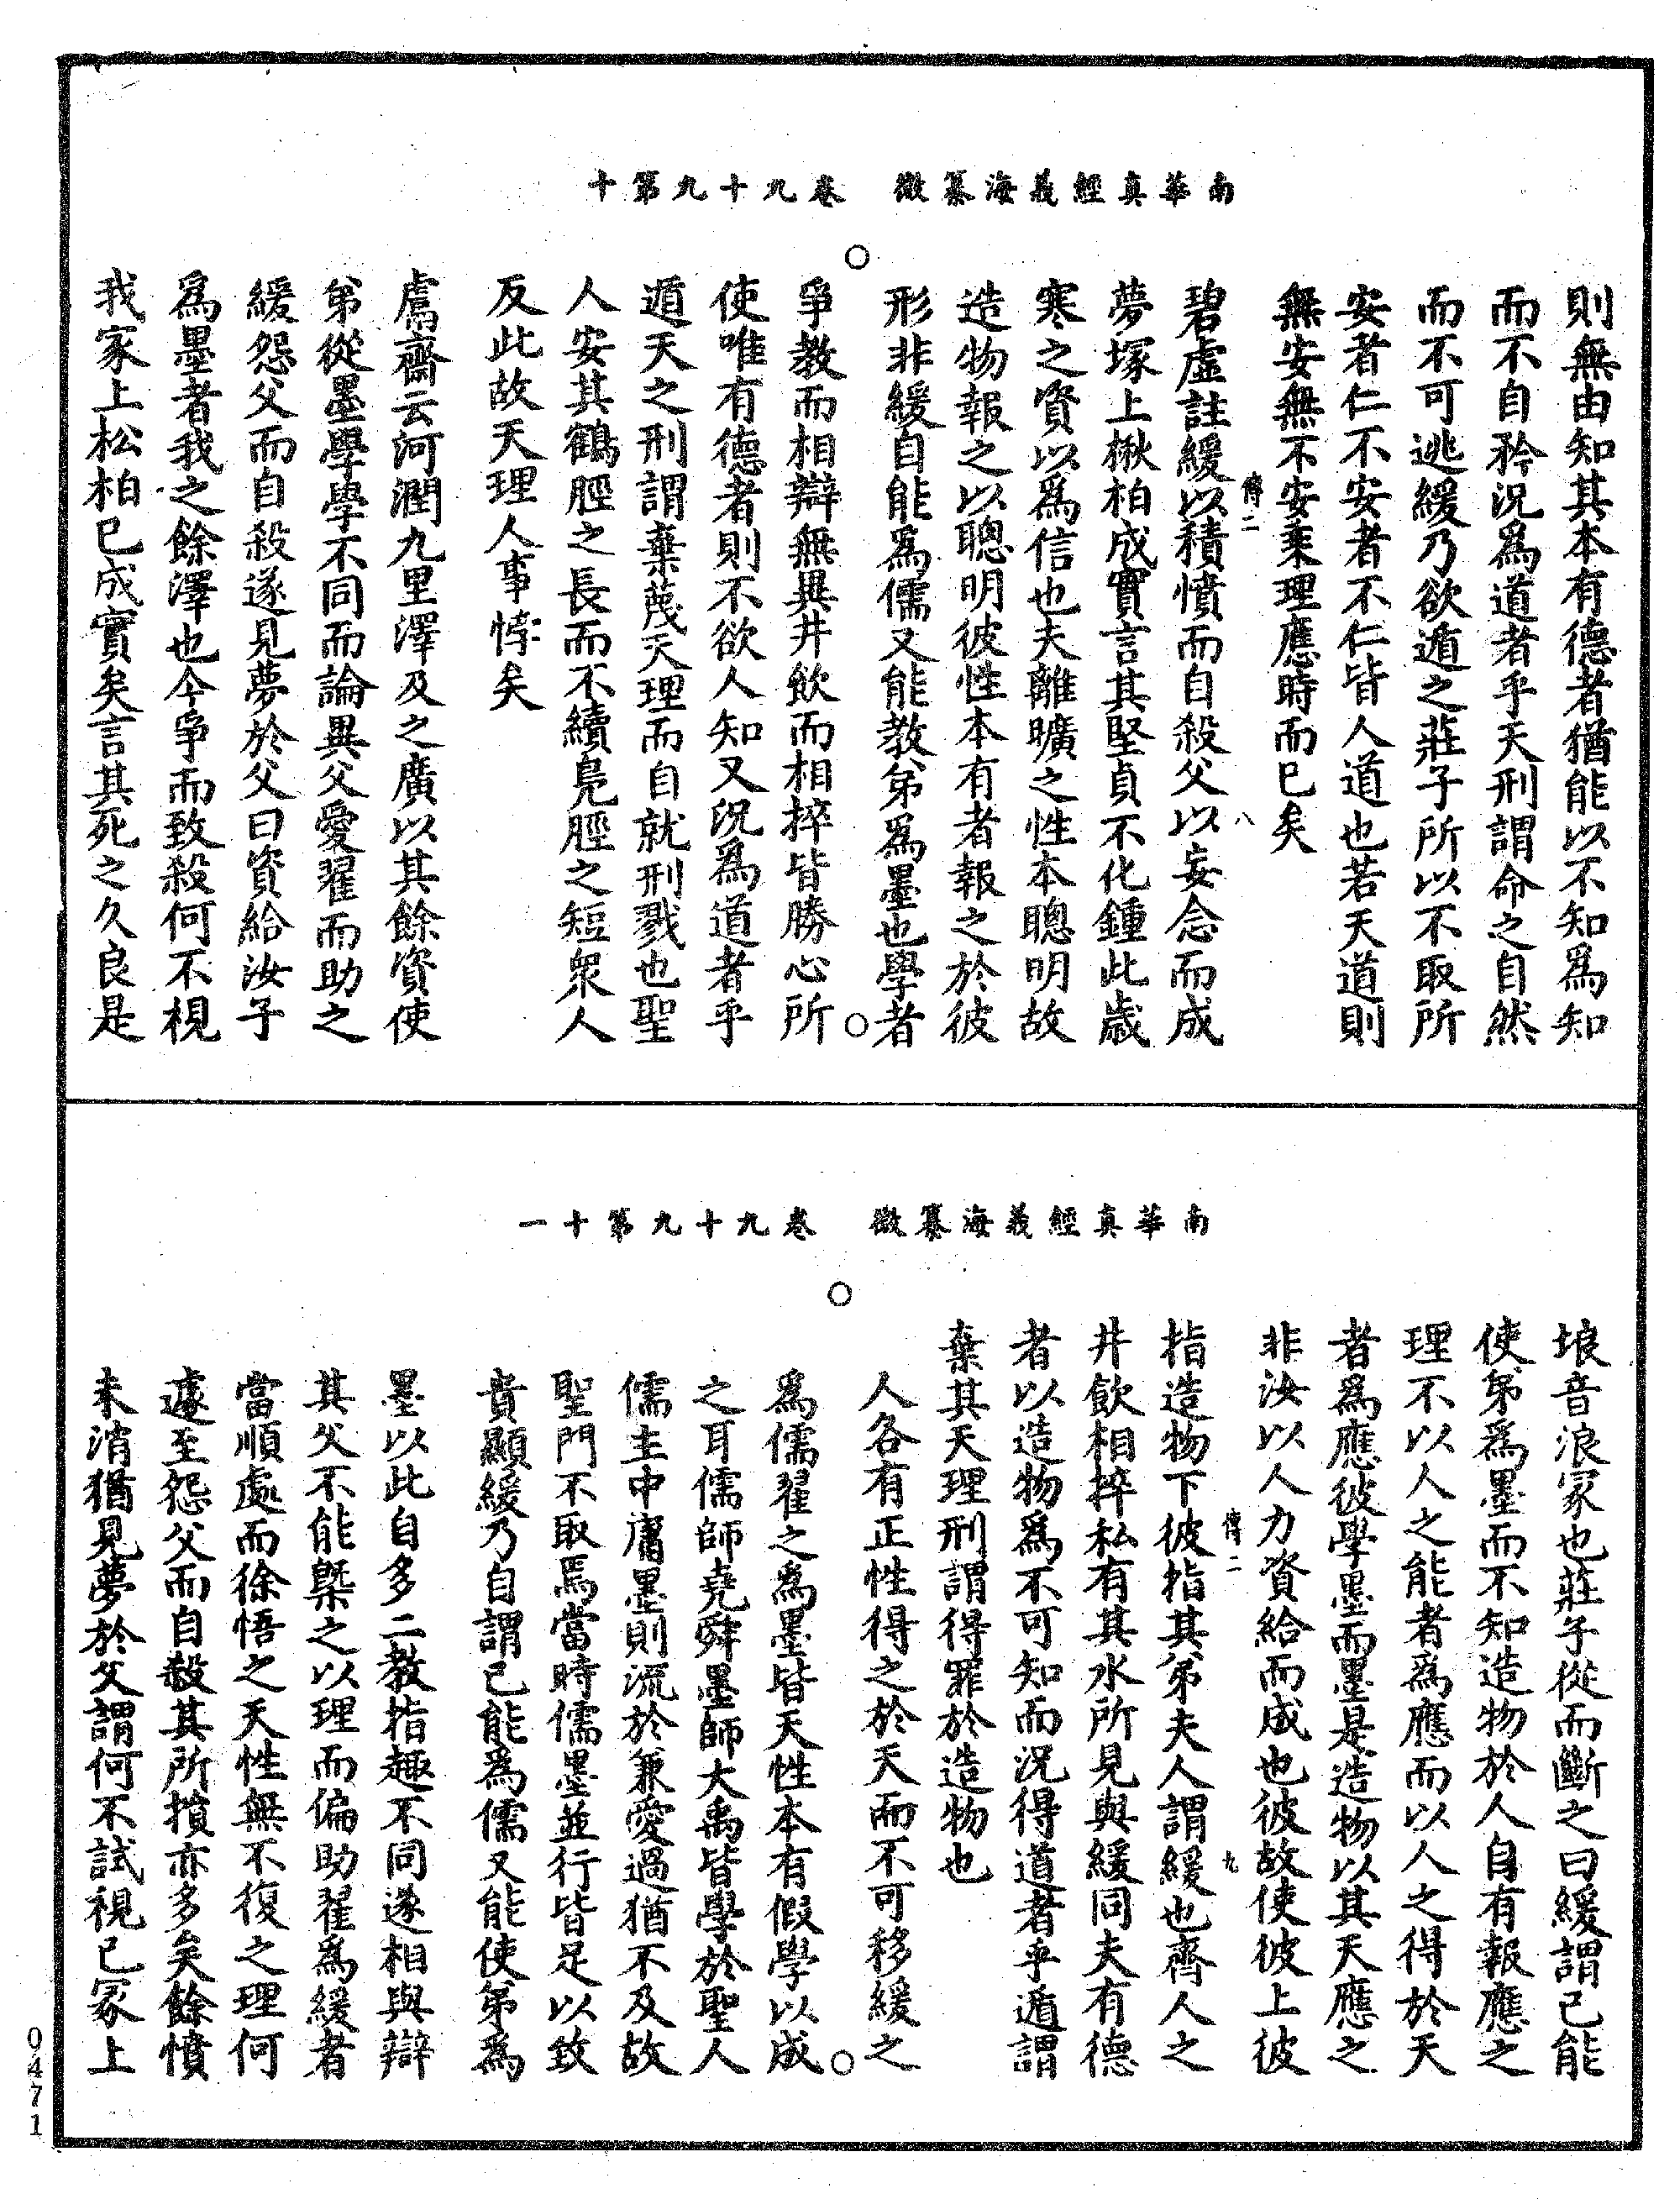 南華真經義海纂微　卷九十九第十
則無由知其本有德者猶能以不知爲知
而不自矜況爲道者乎天刑謂命之自然
而不可逃緩乃欲遁之莊子所以不取所
安者仁不安者不仁皆人道也若天道則
無安無不安乘理應時而已矣
傳二　八
碧虛註緩以積憤而自殺父以妄念而成
夢塚上楸柏成實言其堅貞不化鍾此歲
寒之資以爲信也夫離曠之性本聰明故
造物報之以聰明彼性本有者報之於彼
形非緩自能爲儒又能教弟爲墨也學者
爭教而相辯無異井飲而相捽皆勝心所
使唯有德者則不欲人知又況爲道者乎
遁天之刑謂棄蔑天理而自就刑戮也聖
人安其鶴脛之長而不續鳧脛之短衆人
反此故天理人事悖矣
鬳齋云河潤九里澤及之廣以其餘資使
弟從墨學學不同而論異父愛翟而助之
緩怨父而自殺遂見夢於父曰資給汝子
爲墨者我之餘澤也今爭而致殺何不視
我冢上松柏已成實矣言其死之久良是
南華真經義海纂微　卷九十九第十一
埌音浪冢也莊子從而斷之曰緩謂己能
使弟爲墨而不知造物於人自有報應之
理不以人之能者爲應而以人之得於天
者爲應彼學墨而墨是造物以其天應之
非汝以人力資給而成也彼故使彼上彼
傳二　九
指造物下彼指其弟夫人謂緩也齊人之
井飲相捽私有其水所見與緩同夫有德
者以造物爲不可知而況得道者乎遁謂
棄其天理刑謂得罪於造物也
人各有正性得之於天而不可移緩之
爲儒翟之爲墨皆天性本有假學以成
之耳儒師堯舜墨師大禹皆學於聖人
儒主中庸墨則流於兼愛過猶不及故
聖門不取焉當時儒墨並行皆足以致
貴顯緩乃自謂己能爲儒又能使弟爲
墨以此自多二教指趣不同遂相與辯
其父不能槩之以理而偏助翟爲緩者
當順處而徐悟之天性無不復之理何
遽至怨父而自殺其所損亦多矣餘憤
未消猶見夢於父謂何不試視已冢上
0471